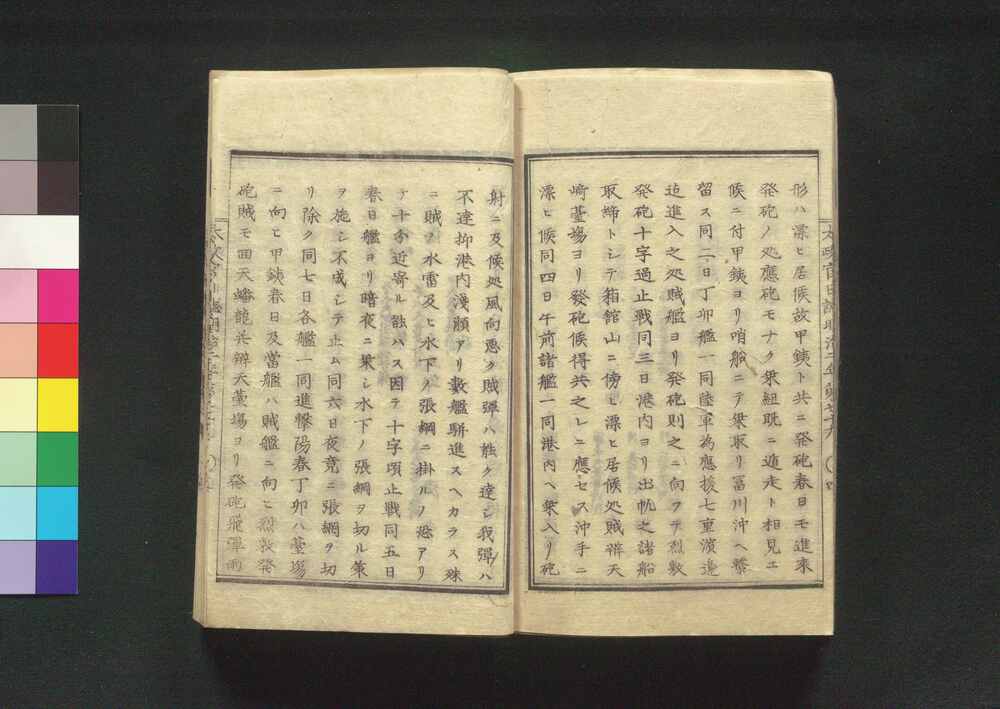 形ハ漂ヒ居候故甲鉄ト共ニ発砲春日モ進来
発砲ノ処應砲モナク乗組既ニ遁走ト相見エ
候ニ付甲鉄ヨリ哨艙ニテ乗取リ冨川沖ヘ繋
留ス同二日丁卯艦一同陸軍為應援七重濱邊
迠進入之処賊艦ヨリ発砲則之ニ向ツテ烈敷
発砲十字過止戦同三日港内ヨリ出帆之諸船
取締トシテ箱館山ニ傍ヒ漂ヒ居候処賊辨天
崎䑓場ヨリ發砲候得共之レニ應セス沖手ニ
漂ヒ候同四日午前諸艦一同港内ヘ乗入リ砲
射ニ及候処風向悪ク賊彈ハ能ク達シ我彈ハ
不達抑港内淺瀬アリ數艦駢進スヘカラス殊
ニ賊ノ水雷及ヒ水下ノ張綱ニ掛ルノ恐アリ
テ十分近寄ル能ハス因テ十字頃止戦同五日
春日艦ヨリ暗夜ニ乗シ水下ノ張綱ヲ切ル策
ヲ施シ不成シテ止ム同六日夜竟ニ張綱ヲ切
リ除ク同七日各艦一同進擊陽春丁卯ハ䑓場
ニ向ヒ甲鉄春日及當艦ハ賊艦ニ向ヒ烈敷発
砲賊モ回天蟠龍共辨天䑓場ヨリ発砲飛彈雨